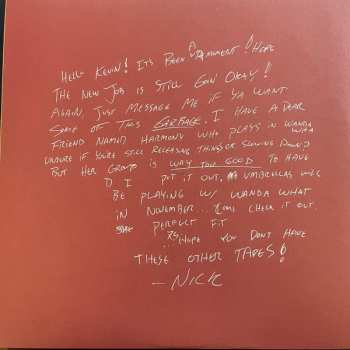 Hello Kevin! It's Been A Moment! Hope
The New Job is Still Goin Okay!!
Again, Just Message Me if Ya Want
Some of This Garbage. I Have A Dear
Friend Named Harmony Who Plays in Wanda Wha
Unsure if You're Still Releasing Things or Slowing Down
But Her Group is Way Too Good To Have
D I Put it out, Umbrellas will
Be Playing w/ Wanda What
in November... Come Check it out
Default Fit
...Hope You Dont Have
These Other Tapes!
- Nick